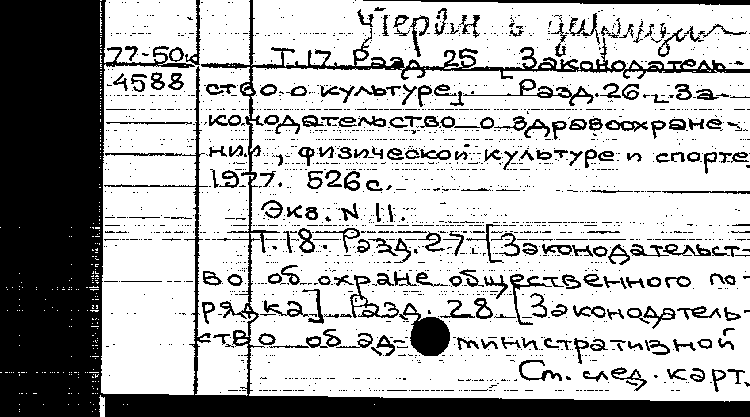 утерян в дирекции
77-50к Т.17. Разд. 25. [Законодатель-
4588 ство о культуре]. Разд. 26. [За-
конодательство о здравоохране-
нии, физической культуре и спорте
1977. 526 с.
Экз. N 11.
Т.18. Разд. 27. [Законодательст-
во об охране общественного по-
рядка] Разд. 28. [Законодатель-
ство об ад- министративной
См. след. карт.